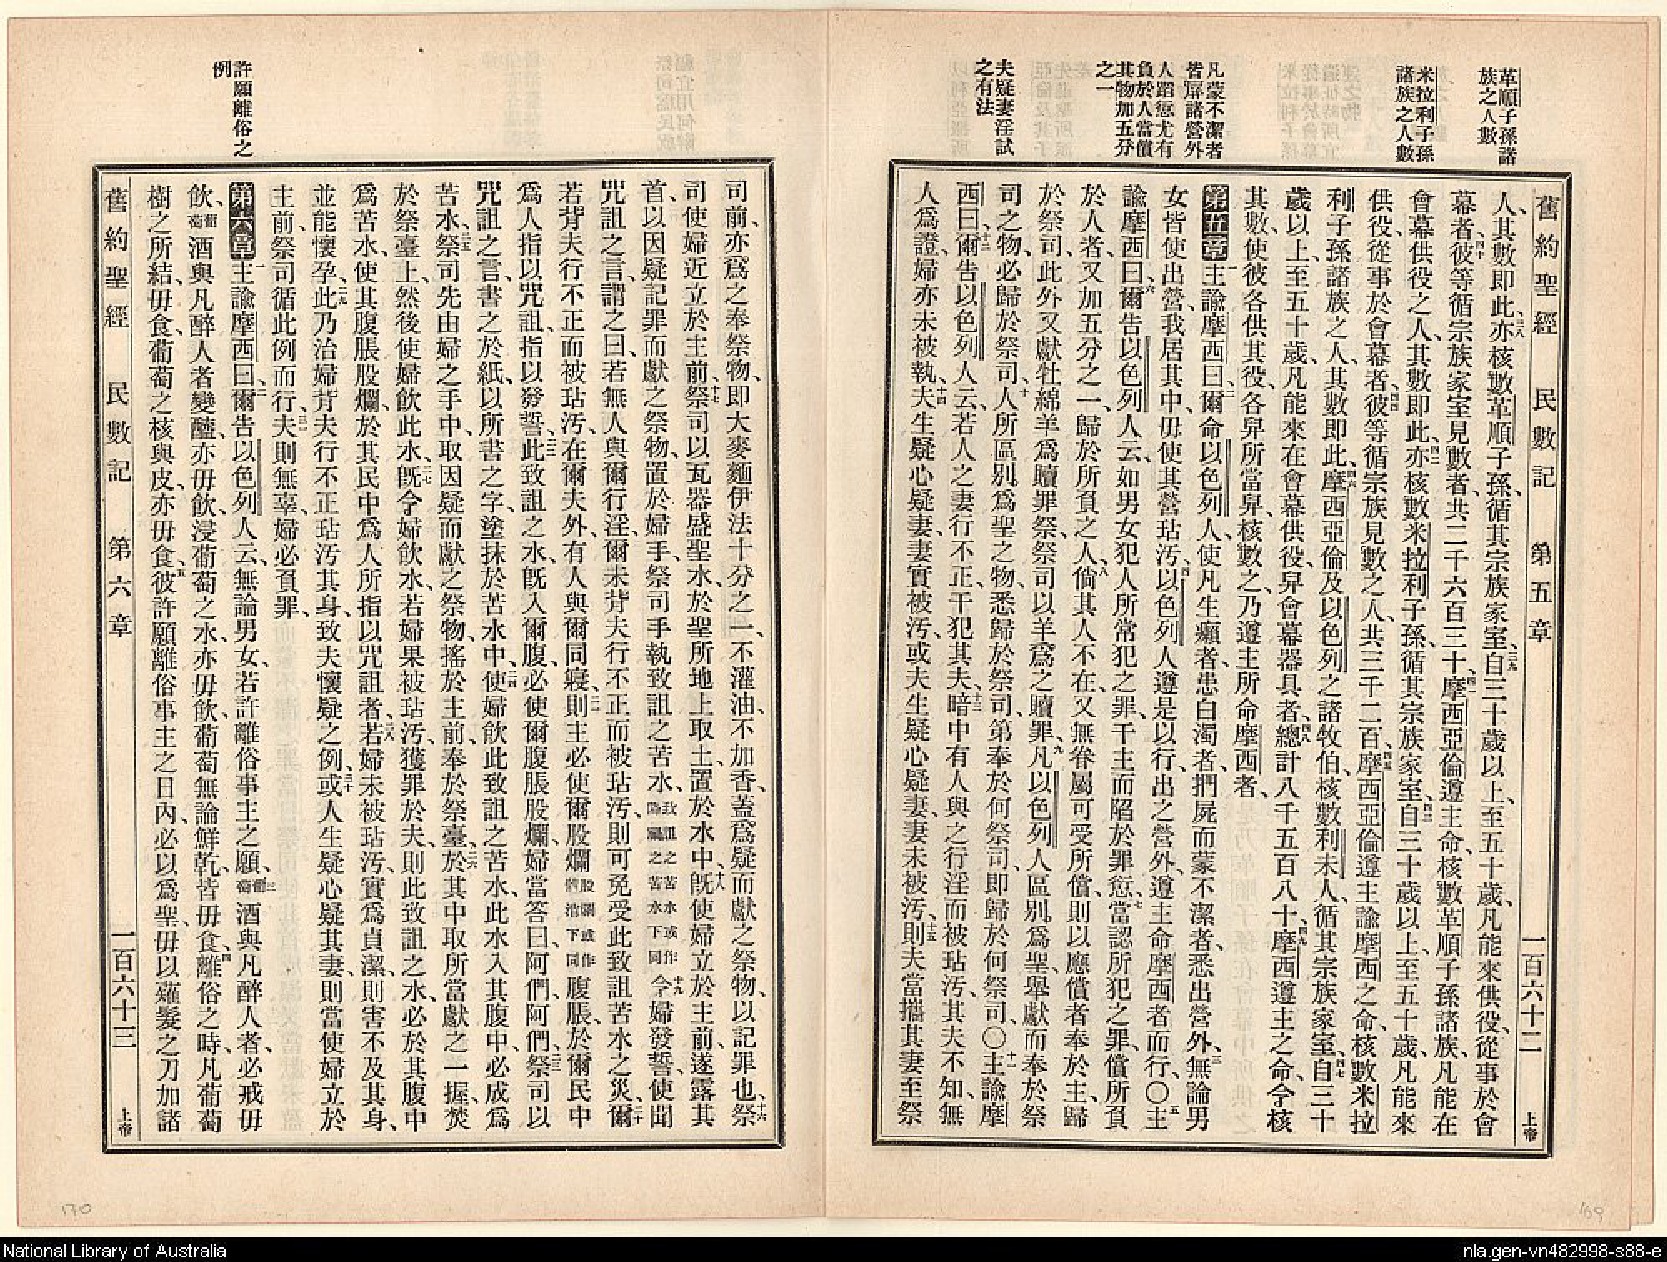 革順子孫諸
族之人數
米拉利子孫
諸族之人數
凡蒙不潔者
皆屛諸營外
人蹈愆尤有
負於人當償
其物加五分
之一
夫疑妻淫試
之有法
舊約聖經 民數記 第五章 一百六十二 上帝
人、其數卽此、三八亦核數革順子孫、循其宗族家室、三九自三十歲以上、至五十歲、凡能來供役、從事於會
幕者、四十彼等循宗族家室見數者、共二千六百三十、四一摩西亞倫遵主命、核數革順子孫諸族、凡能在
會幕供役之人、其數卽此、四二亦核數米拉利子孫、循其宗族家室、四三自三十歲以上、至五十歲、凡能來
供役、從事於會幕者、四四彼等循宗族見數之人、共三千二百、四五摩西亞倫遵主諭摩西之命、核數米拉
利子孫諸族之人、其數卽此、四六摩西亞倫及以色列之諸牧伯、核數利未人、循其宗族家室、四七自三十
歲以上、至五十歲、凡能來在會幕供役、舁會幕器具者、四八總計八千五百八十、四九摩西遵主之命、令核
其數、使彼各供其役、各舁所當舁、核數之、乃遵主所命摩西者、
第五章 一主諭摩西曰、二爾命以色列人、使凡生癩者、患白濁者、捫屍而蒙不潔者、悉出營外、三無論男
女皆使出營、我居其中、毋使其營玷汚、四以色列人遵是以行、出之營外、遵主命摩西者而行、〇五主
諭摩西曰、六爾告以色列人云、如男女犯人所常犯之罪、干主而陷於罪愆、七當認所犯之罪、償所負
於人者、又加五分之一、歸於所負之人、八倘其人不在、又無眷屬可受所償、則以應償者奉於主、歸
於祭司、此外又獻牡綿羊爲贖罪祭、祭司以羊爲之贖罪、九凡以色列人區別爲聖、舉獻而奉於祭
司之物、必歸於祭司、十人所區別爲聖之物、悉歸於祭司、第奉於何祭司、卽歸於何祭司、〇十一主諭摩
西曰、十二爾告以色列人云、若人之妻行不正、干犯其夫、十三暗中有人與之行淫而被玷汚、其夫不知、無
人爲證、婦亦未被執、十四夫生疑心疑妻、妻實被汚、或夫生疑心疑妻、妻未被汚、十五則夫當攜其妻至祭
許願離俗之
例
司前、亦爲之奉祭物、卽大麥麵伊法十分之一、不灌油、不加香、蓋爲疑而獻之祭物、以記罪也、十六祭
司使婦近立於主前、十七祭司以瓦器盛聖水、於聖所地上取土、置於水中、十八旣使婦立於主前、遂露其
首、以因疑記罪而獻之祭物、置於婦手、祭司手執致詛之苦水、致詛之苦水或作降禍之苦水下同 十九令婦發誓、使聞
咒詛之言、謂之曰、若無人與爾行淫、爾未背夫行不正而被玷汚、則可免受此致詛苦水之災、二十爾
若背夫行不正而被玷汚、在爾夫外、有人與爾同寢、二一則主必使爾股爛股爛或作臀消下同腹脹、於爾民中
爲人指以咒詛、指以發誓、二二此致詛之水、旣入爾腹、必使爾腹脹股爛、婦當答曰、阿們阿們、二三祭司以
咒詛之言、書之於紙、以所書之字、塗抹於苦水中、二四使婦飲此致詛之苦水、此水入其腹中、必成爲
苦水、二五祭司先由婦之手中、取因疑而獻之祭物、搖於主前、奉於祭臺、二六於其中取所當獻之一握、焚
於祭臺上、然後使婦飲此水、二七旣令婦飲水、若婦果被玷汚、獲罪於夫、則此致詛之水、必於其腹中
爲苦水、使其腹脹股爛、於其民中爲人所指以咒詛者、二八若婦未被玷汚、實爲貞潔、則害不及其身、
並能懷孕、二九此乃治婦背夫行不正玷汚其身、致夫懷疑之例、三十或人生疑心疑其妻、則當使婦立於
主前、祭司循此例而行、三一夫則無辜、婦必負罪、
第六章 一主諭摩西曰、二爾告以色列人云、無論男女、若許離俗事主之願、三葡萄酒與凡醉人者必戒、毋
飲葡萄酒與凡醉人者變醯、亦毋飲浸葡萄之水、亦毋飲葡萄、無論鮮乾皆毋食、四離俗之時、凡葡萄
樹之所結、毋食、葡萄之核與皮、亦毋食、五彼許願離俗事主之日內、必以爲聖、毋以薙髮之刀加諸
舊約聖經 民數記 第六章 一百六十三 上帝
170
169
National Library of Australia
nla.gen-vn482998-s88-e